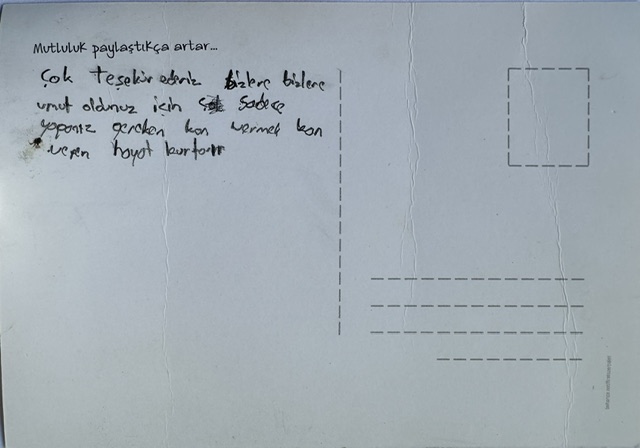 Mutluluk paylaştıkça artar...
Çok Teşekür ederiz bizlere bizlere
umut oldunuz için Sadece
yapanız gereken kan vermek kan
veren hayat kurtarır